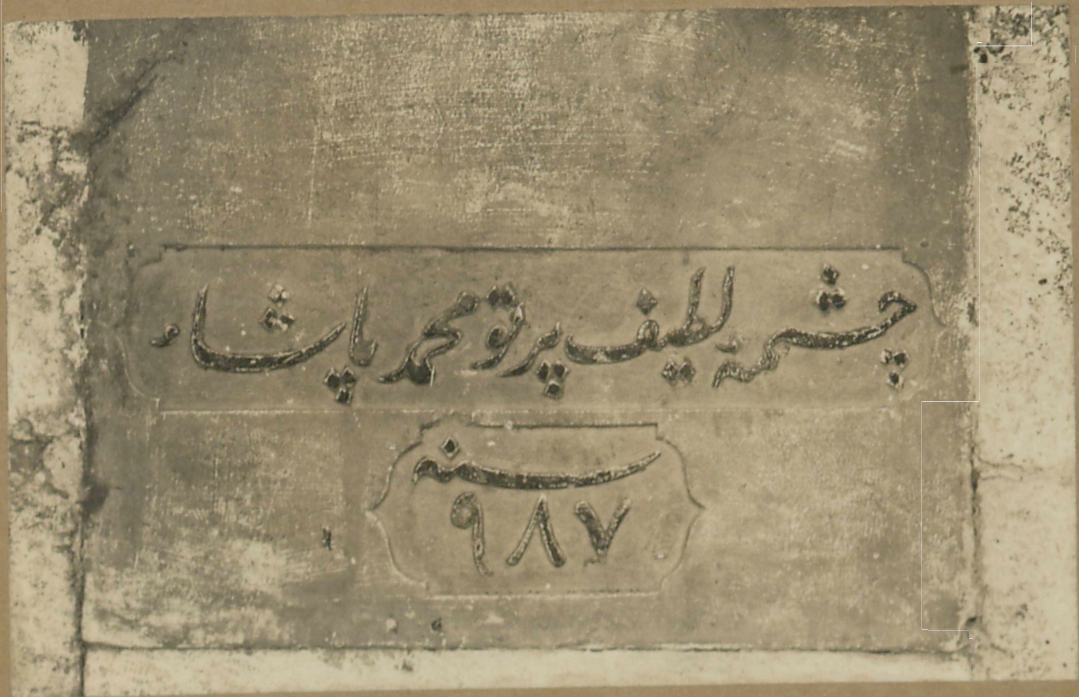 چشمهٔ لطيف پرتو محمد پاشاء
سنه
٩٨٧